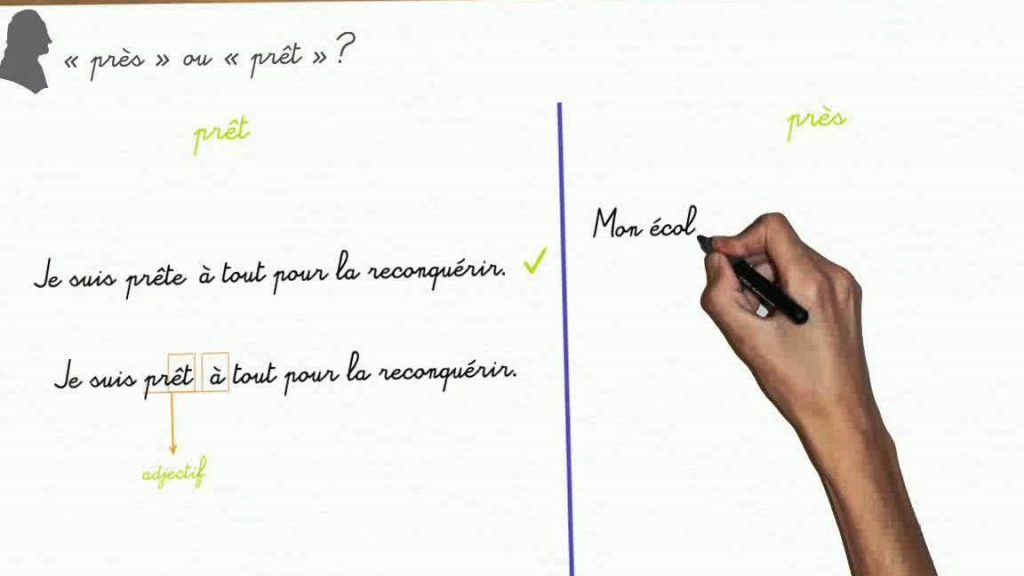 « près » ou « prêt » ?
prêt
Je suis prête à tout pour la reconquérir.
Je suis prêt à tout pour la reconquérir.
adjectif
près
Mon écol